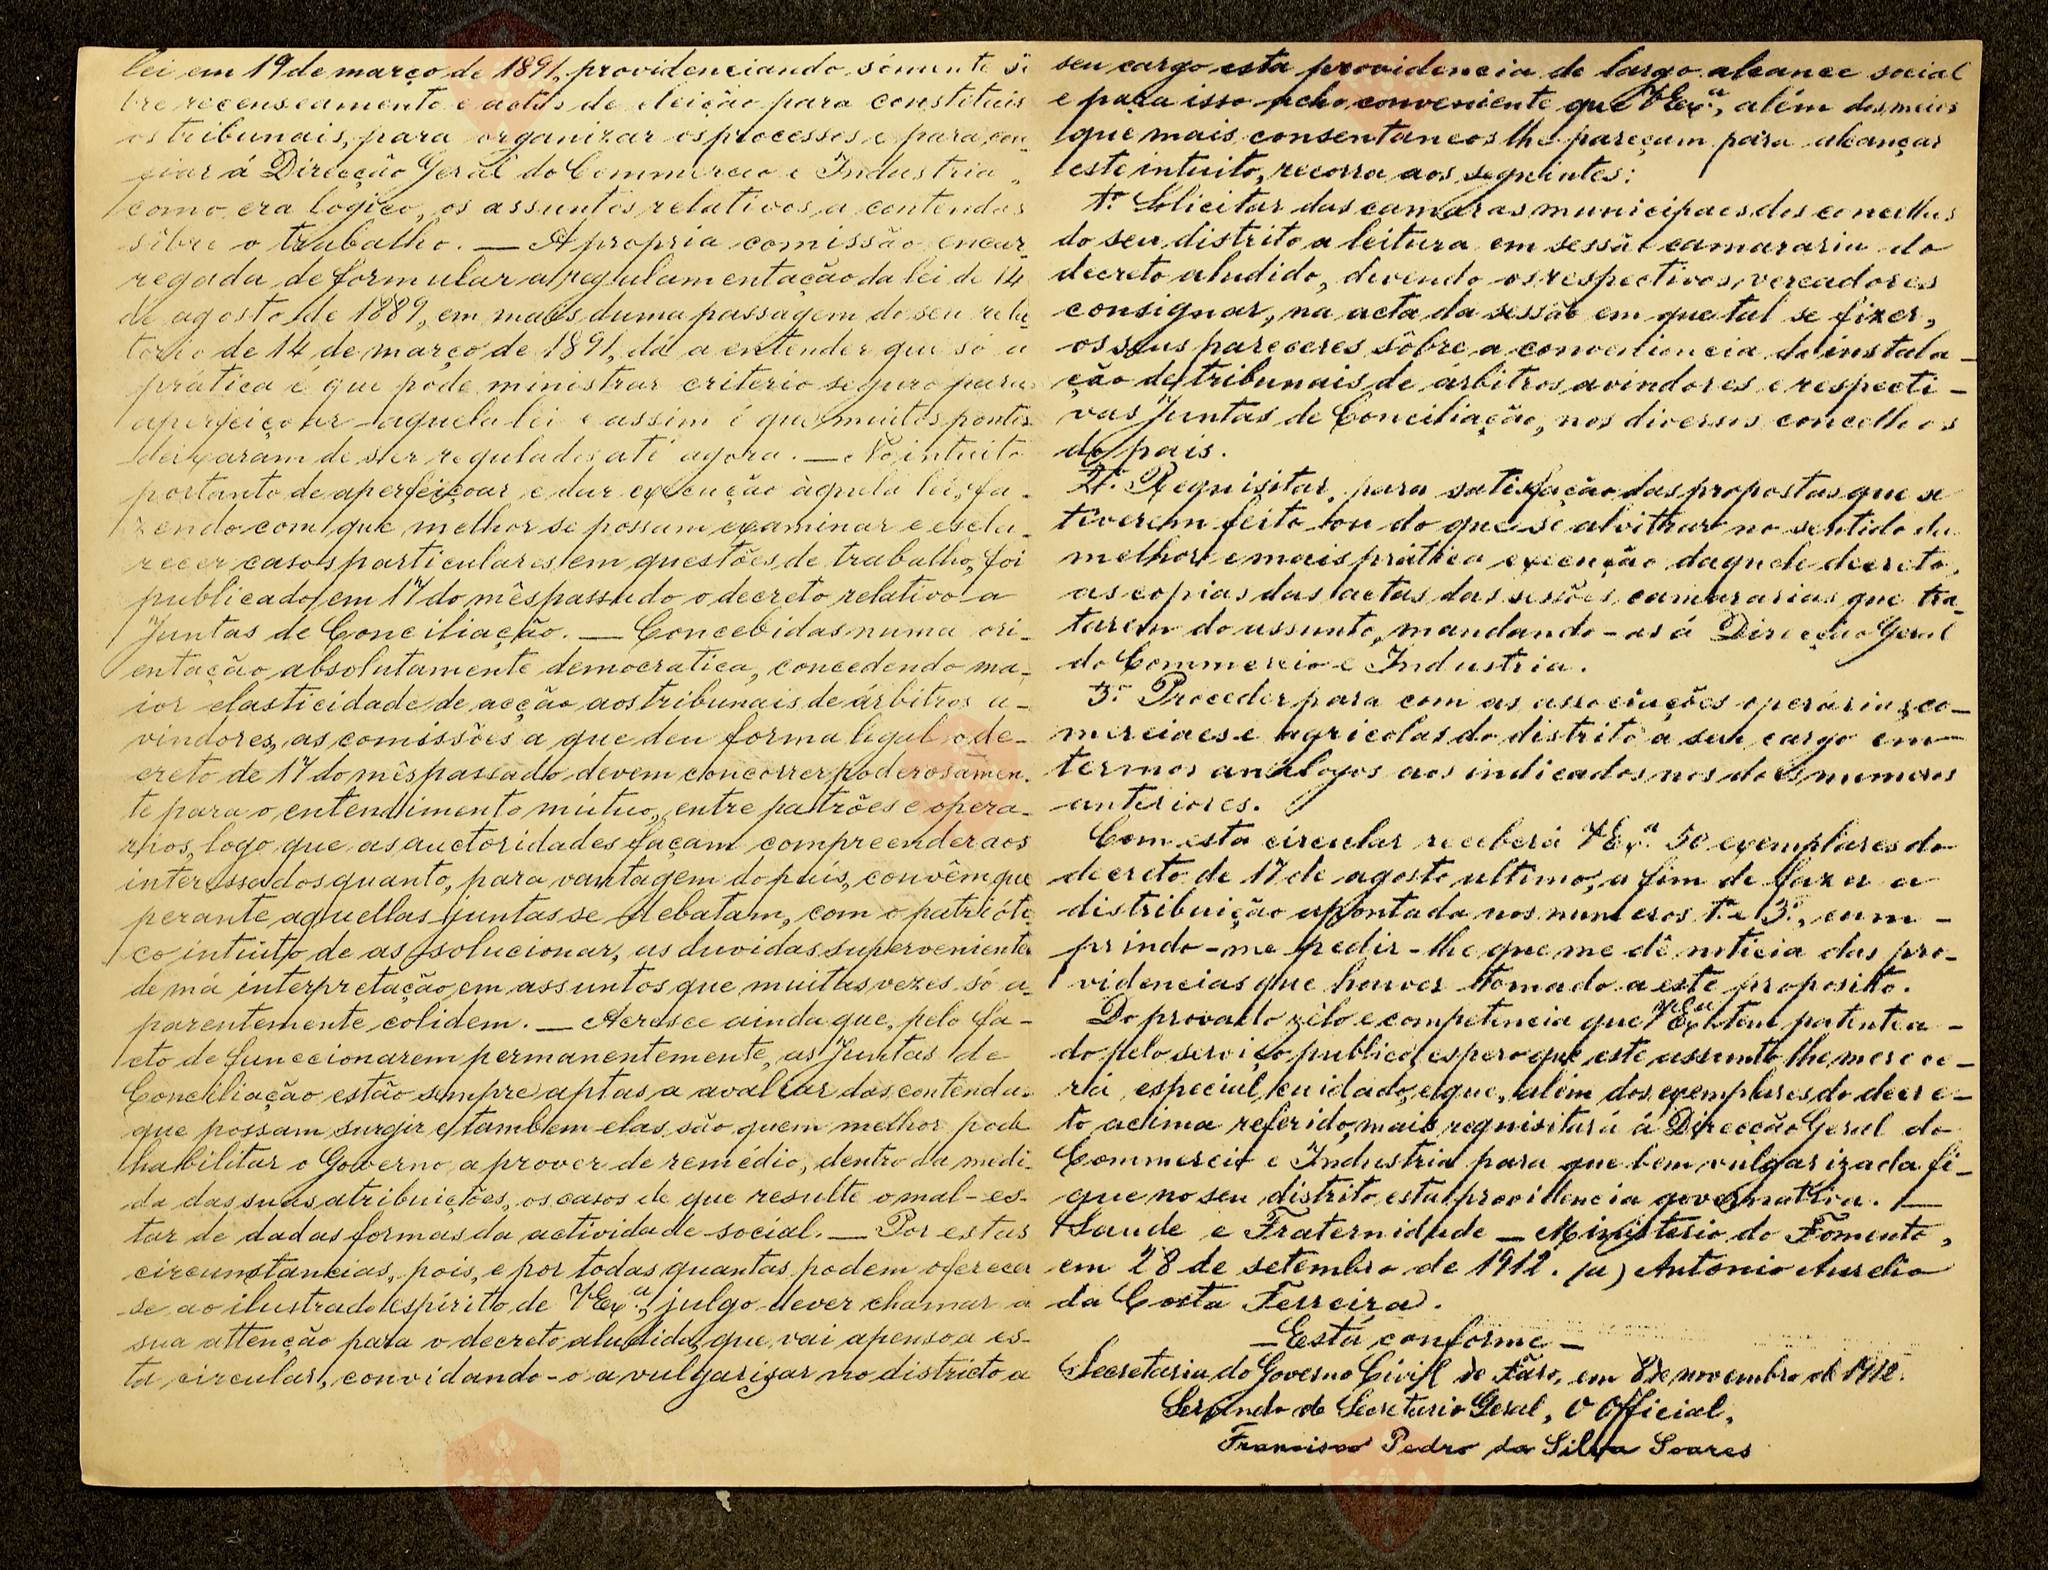 lei em 19 de março de 1891, providenciando sómente sô
bre recenseamento e actos de eleição para constituir
os tribunais, para organizar os processos e para en
viar á Direcção Geral do Commercio e Industria,
como era logico, os assuntos relativos a contendas
sôbre o trabalho. — A propria comissão encar
regada de formular a regulamentação da lei de 14
de agosto de 1889, em mais duma passagem do seu rela
torio de 14 de março de 1891, dá a entender que só a
prática é que póde ministrar criterio seguro para
aperfeiçoar aquela lei e assim é que muitos pontos
deixaram de ser regulados até agora. — No intuito
portanto de aperfeiçoar e dar execução àquela lei, fa-
zendo com que melhor se possam examinar e escla-
recer casos particulares em questões de trabalho, foi
publicado em 17 do mês passado o decreto relativo a
Juntas de Conciliação. — Concebidas numa ori-
entação absolutamente democratica, concedendo ma-
ior elasticidade de acção aos tribunais de árbitros a-
vindores, as comissões a que deu forma legal o de-
creto de 17 do mês passado devem concorrer poderosamen-
te para o entendimento mútuo, entre patrões e opera-
rios, logo que as auctoridades façam compreender aos
interessados quanto, para vantagem do país, convêm que
perante aquellas juntas se debatam, com o patrióti
co intuito de as solucionar, as duvidas supervenientes
de má interpretação em assuntos que muitas vezes só a-
parentemente colidem. — Acresce ainda que, pelo fa-
cto de funccionarem permanentemente, as Juntas de
Conciliação estão sempre aptas a avaliar das contendas
que possam surgir e tambem elas são quem melhor pode
habilitar o Governo a prover de remédio, dentro da medi-
da das suas atribuições, os casos de que resulte o mal-es-
tar de dadas formas da actividade social. — Por estas
circumstancias, pois, e por todas quantas podem oferecer
se ao ilustrado espirito de V. Ex.ª, julgo dever chamar a
sua attenção para o decreto aludido, que vai apenso a es-
ta circular, convidando-o a vulgarizar no districto a
seu cargo esta providencia de largo alcance social
e para isso acho conveniente que V. Ex.ª, além dos meios
que mais consentaneos lhe pareçam para alcançar
este intuito, recorra aos seguintes:
1.º Solicitar das camaras municipaes dos concelhos
do seu distrito a leitura em sessão camararia do
decreto aludido, devendo os respectivos vereadores
consignar, na acta da sessão em que tal se fizer,
os seus pareceres sôbre a conveniencia da instala-
ção de tribunais de árbitros avindores e respecti-
vas Juntas de Conciliação, nos diversos concelhos
do pais.
2.º Requisitar, para satisfação das propostas que se
tiverem feito ou do que se alvitrar no sentido da
melhor e mais prática execução daquele decreto,
as copias das actas das sessões camararias que tra-
tarem do assunto, mandando-as á Direcção Geral
do Commercio e Industria.
3.º Proceder para com as associações operárias, co-
merciaes e agricolas do distrito a seu cargo em
termos analogos aos indicados nos dois numeros
anteriores.
Com esta circular receberá V. Ex.ª 50 exemplares do
decreto de 17 de agosto ultimo, a fim de fazer a
distribuição apontada nos numeros 1.º e 3.º, cum-
prindo-me pedir-lhe que me dê noticia das pro-
videncias que houver tomado a este proposito.
Do provado zêlo e competencia que V. Ex.ª tem patentea-
do pelo serviço publico, espero que este assunto lhe merece-
rá especial cuidado, e que, além dos exemplares do decre-
to acima referido, mais requisitará á Direcção Geral do
Commercio e Industria para que bem vulgarizada fi-
que no seu distrito esta providencia governativa. —
Saude e Fraternidade — Ministerio do Fomento,
em 28 de setembro de 1912. (a) Antonio Aurelio
da Costa Ferreira.
— Está conforme —
Secretaria do Governo Civil de Faro, em 8 de novembro de 1912.
Servindo de Secretario Geral, O Official,
Francisco Pedro da Silva Soares
Bispo
Bispo